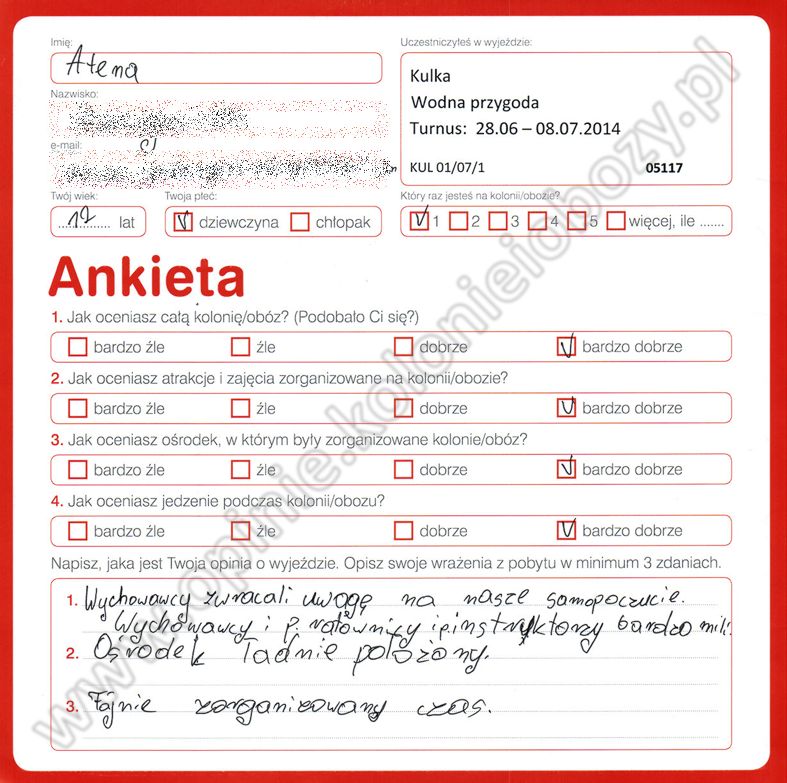 Imię:
Atena
Uczestniczyłeś w wyjeździe:
Kulka
Wodna przygoda
Turnus: 28.06 – 08.07.2014
KUL 01/07/1 05117
Nazwisko:
e-mail:
Twój wiek:
12 lat
Twoja płeć:
dziewczyna chłopak
Który raz jesteś na kolonii/obozie?
1 2 3 4 5 więcej, ile .......
Ankieta
1. Jak oceniasz całą kolonię/obóz? (Podobało Ci się?)
bardzo źle źle dobrze bardzo dobrze
2. Jak oceniasz atrakcje i zajęcia zorganizowane na kolonii/obozie?
bardzo źle źle dobrze bardzo dobrze
3. Jak oceniasz ośrodek, w którym były zorganizowane kolonie/obóz?
bardzo źle źle dobrze bardzo dobrze
4. Jak oceniasz jedzenie podczas kolonii/obozu?
bardzo źle źle dobrze bardzo dobrze
Napisz, jaka jest Twoja opinia o wyjeździe. Opisz swoje wrażenia z pobytu w minimum 3 zdaniach.
1. Wychowawcy zwracali uwagę na nasze samopoczucie.
Wychowawcy i p. ratownicy i p. instruktorzy bardzo mili.
2. Ośrodek ładnie położony.
3. Fajnie zorganizowany czas.
www.opinie.kolonieiobozy.pl